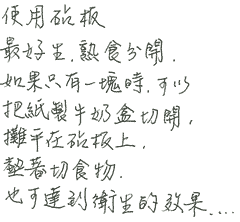 使用砧板
最好生,熟食分開,
如果只有一塊時,可以
把紙製牛奶盒切開,
攤平在砧板上,
墊著切食物.
也可達到衛生的效果....